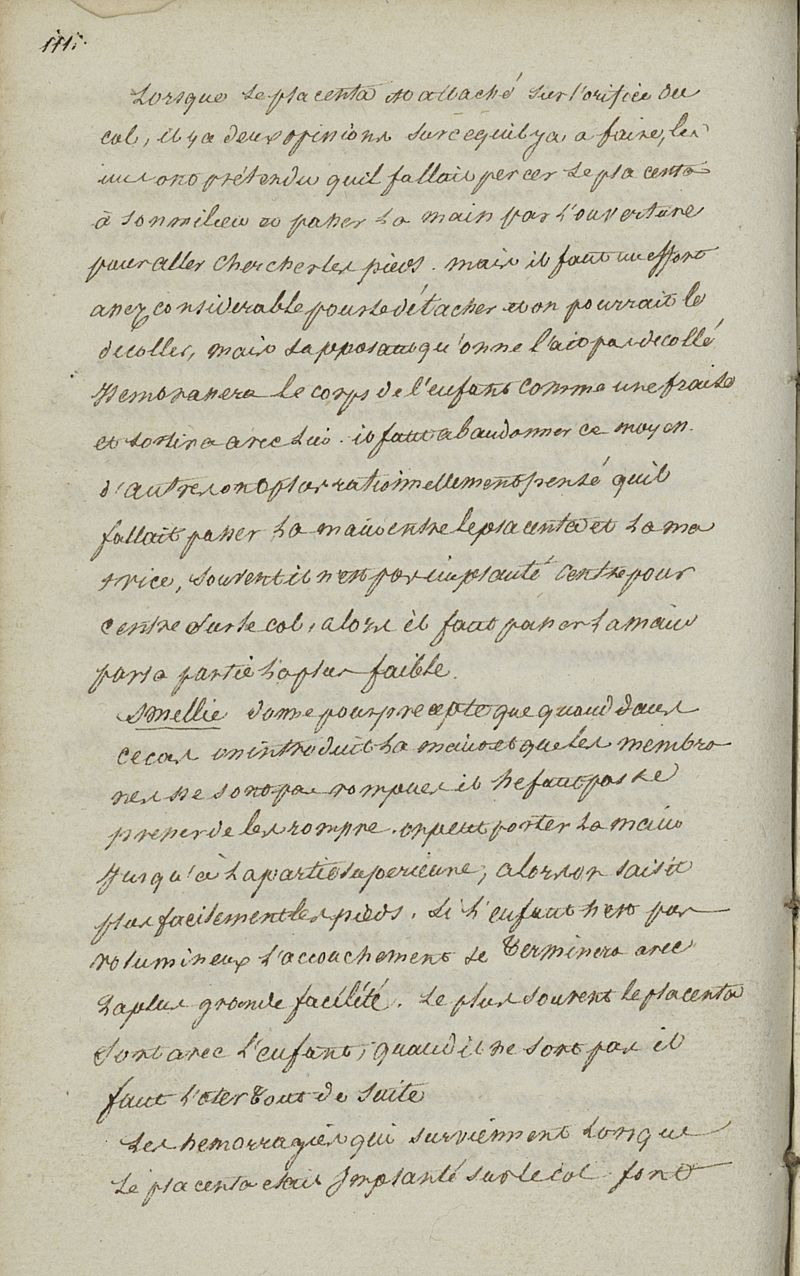 Lorsque le placenta est attaché sur l'orifice du
col, il y a deux opinions sur ce qu'il y a a faire, les
uns ont prétendu qu'il fallait percer le placenta
à son milieu et passer la main par l'ouverture
pour aller chercher les pieds. mais il faut un effort
assez considerable pour le détacher et on pourrait le
décoller, mais supposant qu'on ne l'ait pas decollé
Jl embrassera le corps de l'enfant comme une fraise
et sortira avec lui. il faut abandonner ce moyen.
d'autres ont plus rationnellement pensé qu'il
fallait passer la main entre le placenta et la ma
trice, souvent il n'est pas implanté centre pour
centre sur le col, alors il faut passer la main
par la partie la plus faible.
Smellie donne pour precepte que quand dans
ce cas on introduit la main et que les membra
nes ne sont pas rompues il ne faut pas se
presser de les rompre. on peut porter la main
Jusqu'à la partie superieure, alors on saisit
plus facilement les pieds. si l'enfant n'est pas
volumineux l'accouchement se terminera avec
la plus grande facilité. Le plus souvent le placenta
sort avec l'enfant, quand il ne sort pas il
faut l'oter tout de suite
Les hemorragies qui surviennent lorsque
le placenta était Jmplanté sur le col font